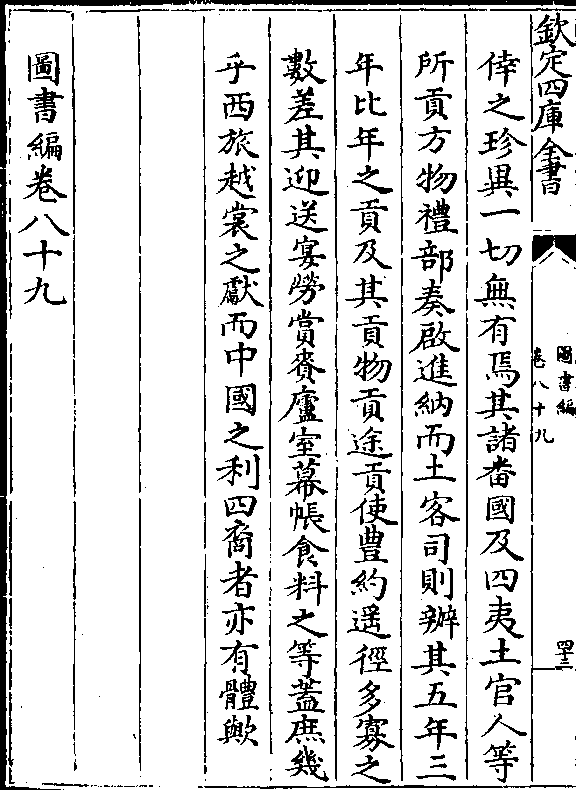 欽定四庫全書
圖書編
卷八十九
四十三
倖之珍異一切無有焉其諸番國及四夷土官人等
所貢方物禮部奏啟進納而土客司則辦其五年三
年比年之貢及其貢物貢途貢使豊約遥徑多寡之
數差其迎送宴勞賞賚廬室幕帳食料之等蓋庶幾
乎西旅越裳之獻而中國之利四裔者亦有體歟
圖書編卷八十九